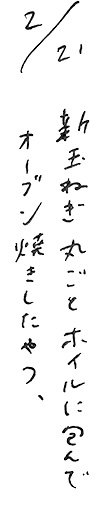 2/21
新玉ねぎ丸ごとホイルに包んで
オーブン焼きしたやつ、